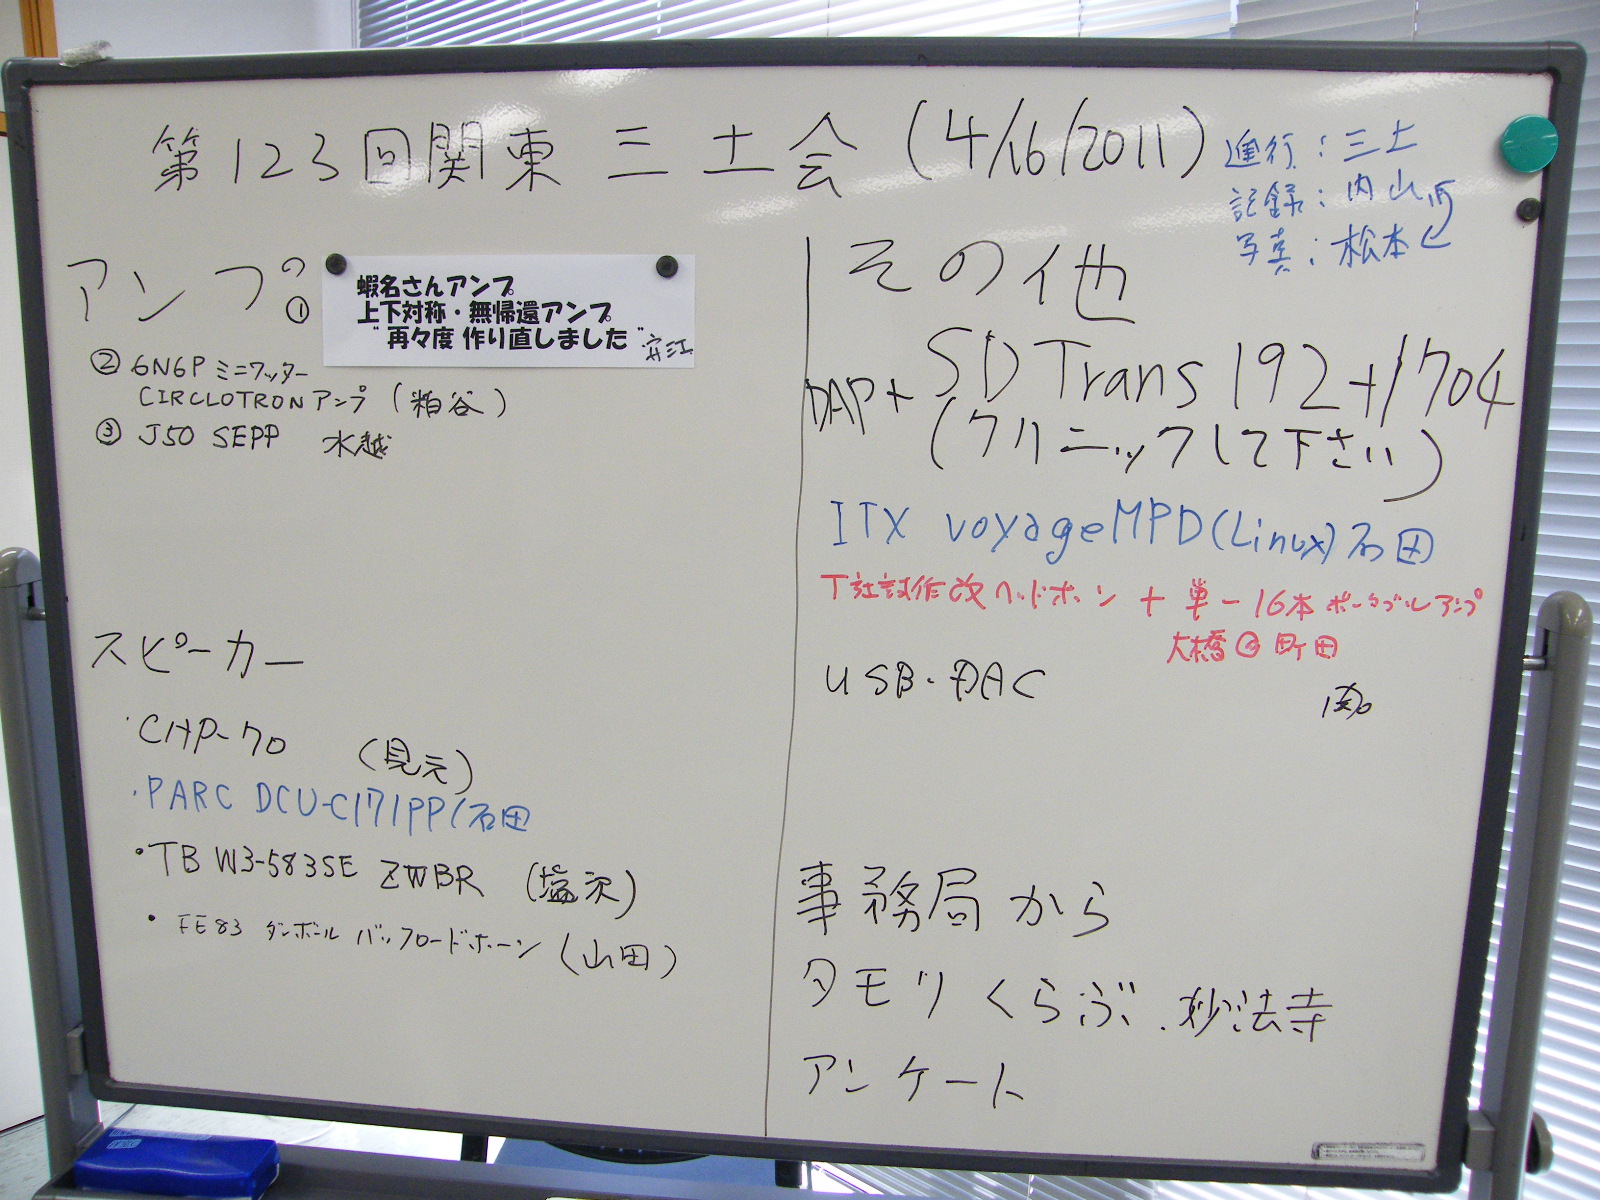 第123回関東三土会(4/16/2011)
進行：三土
記録：内山
写真：松本
アンプの
①
蝦名さんアンプ
上下対称・無帰還アンプ
"再々度 作り直しました" 安江
② 6N6P ミニワッター
CIRCLOTRON アンプ (粕谷)
③ J50 SEPP 水越
スピーカー
・CHP-70 (見元)
・PARC DCU-C171PP/石田
・TB W3-583SE ZWBR (塩沢)
・FE83 ダンボール バックロードホーン (山田)
その他
DAP+ SD Trans 192+1704
(クリニックして下さい)
ITX voyageMPD(Linux) 石田
T社試作改ヘッドホーン + 単一16本ポータブルアンプ
大橋@町田
USB・DAC
事務局から
タモリくらぶ.妙法寺
アンケート